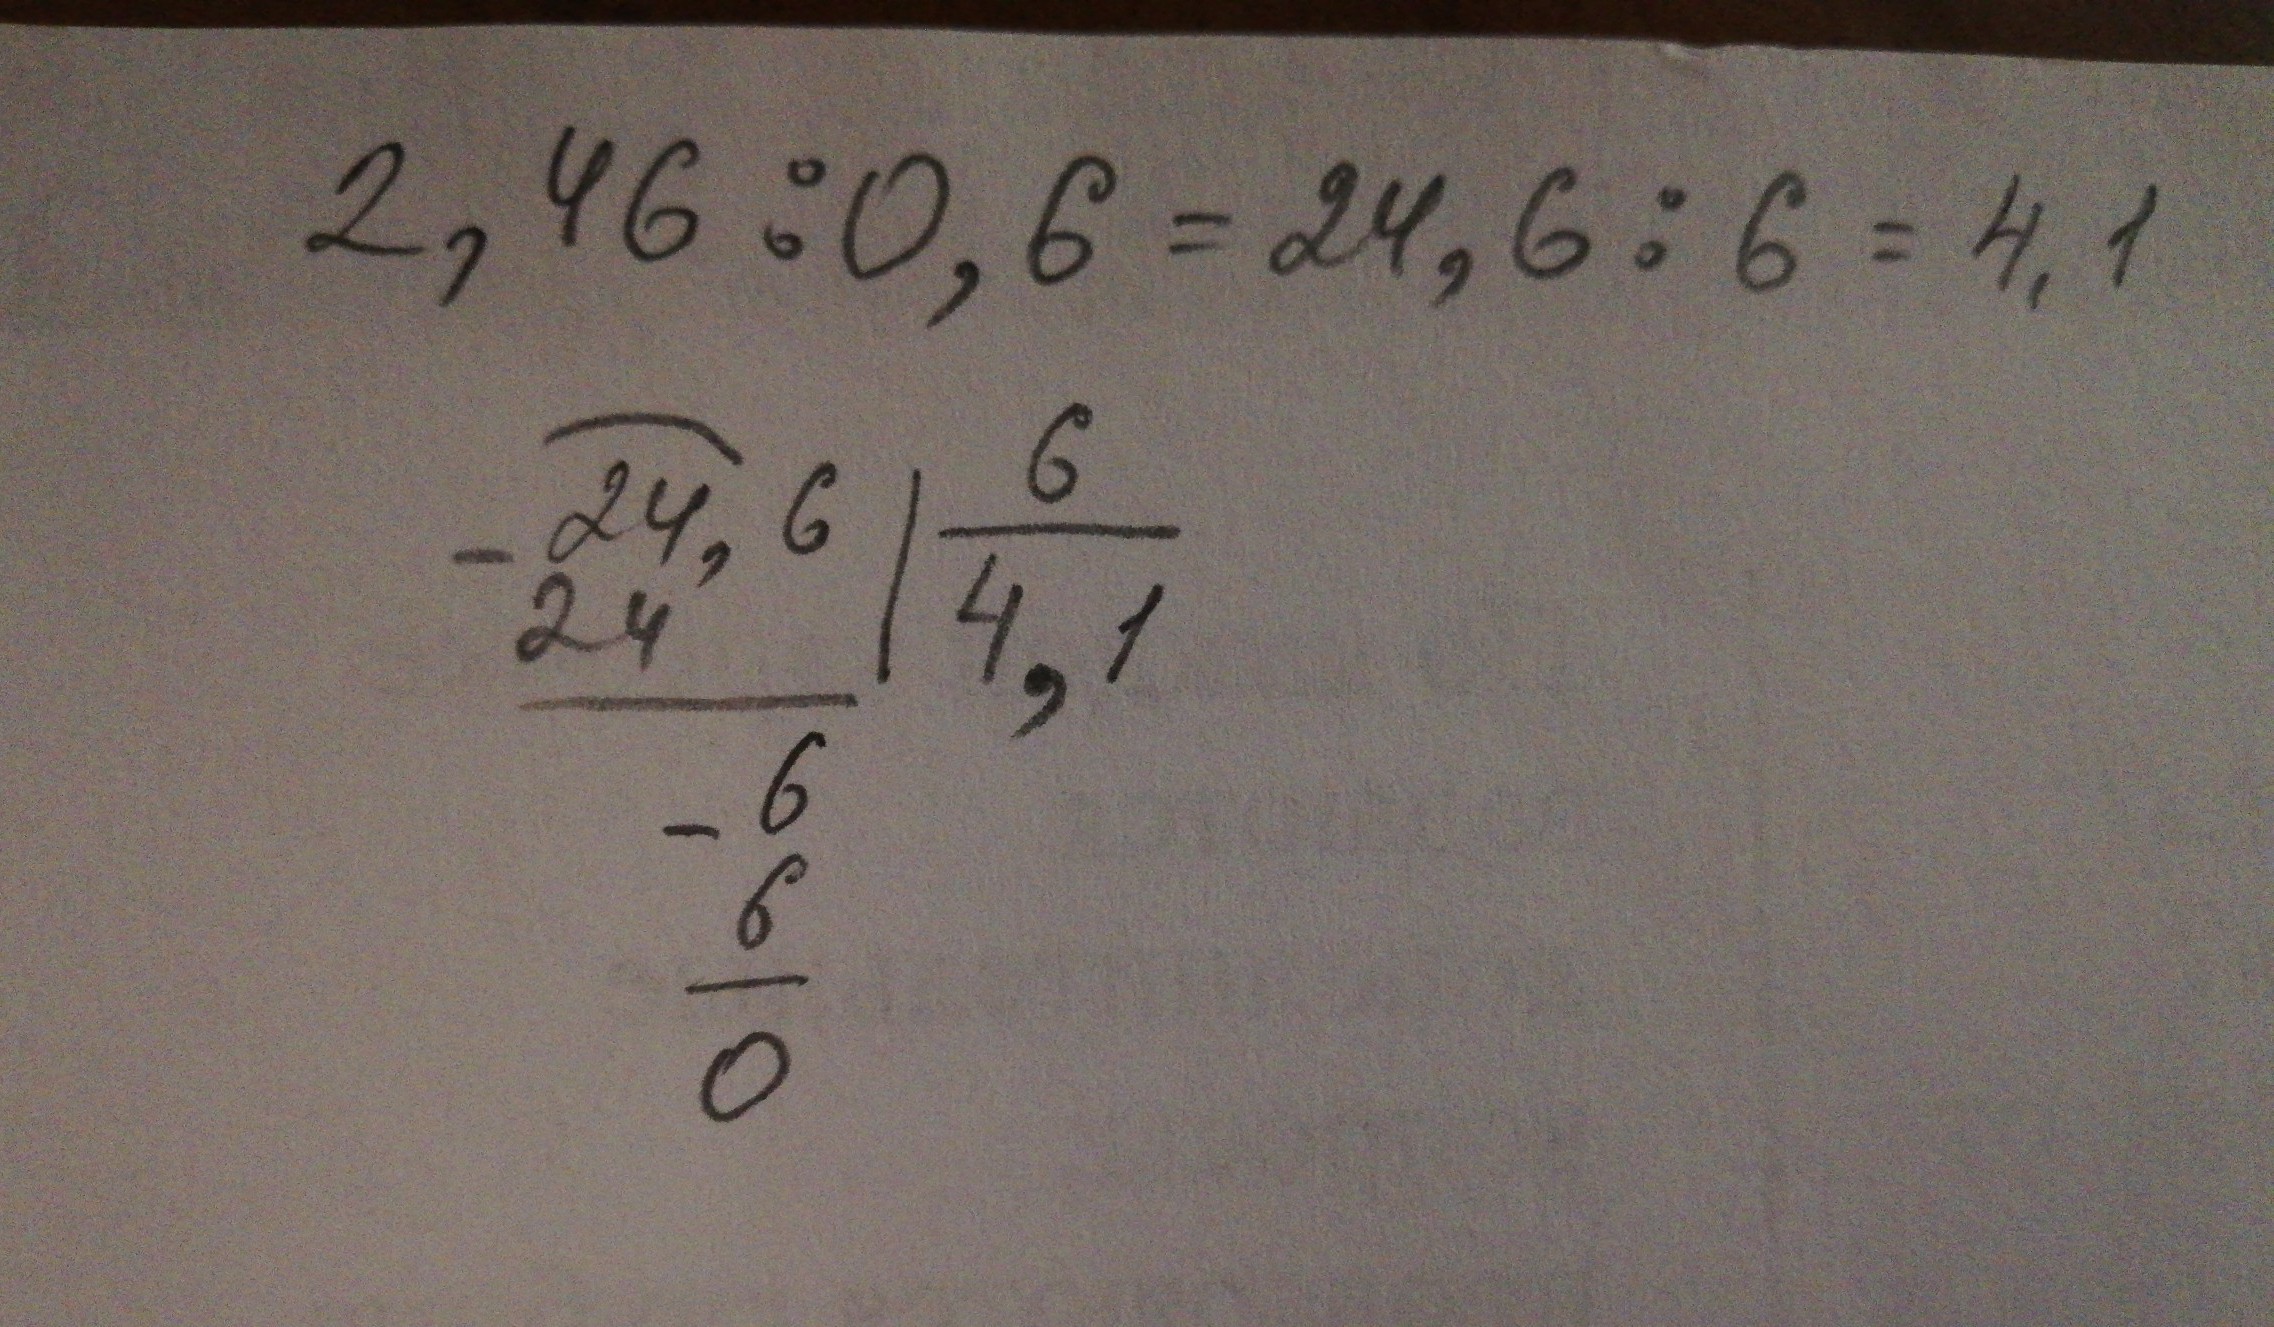 2,46:0,6=24,6:6=4,1
6
-24,6
24 4,1
-6
6
0